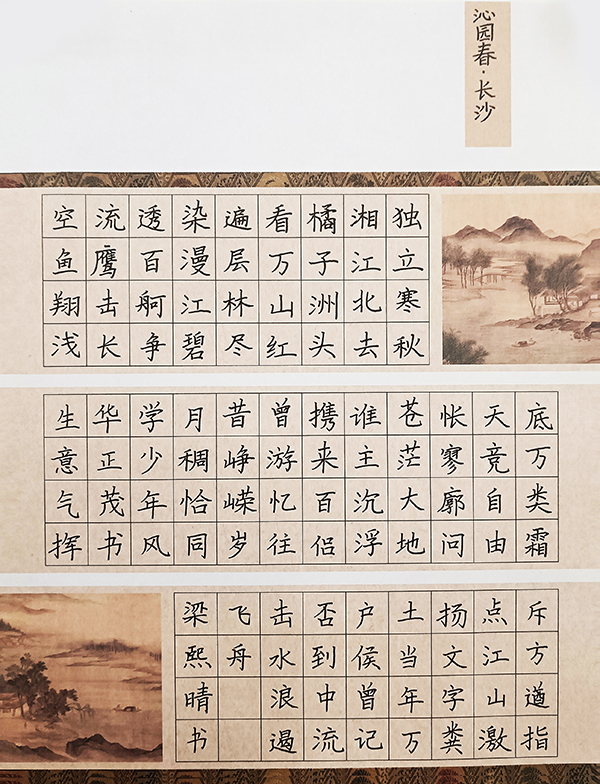 沁园春·长沙
独立寒秋
湘江北去
橘子洲头
看万山红
遍层林尽
染漫江碧
透百舸争
流鹰击长
空鱼翔浅
底万类霜
天竞自由
怅寥廓问
苍茫大地
谁主沉浮
携来百侣
曾游忆往
昔峥嵘岁
月稠恰同
学少年风
华正茂书
生意气挥
斥方遒指
点江山激
扬文字粪
土当年万
户侯曾记
否到中流
击水浪遏
飞舟
梁熙晴书